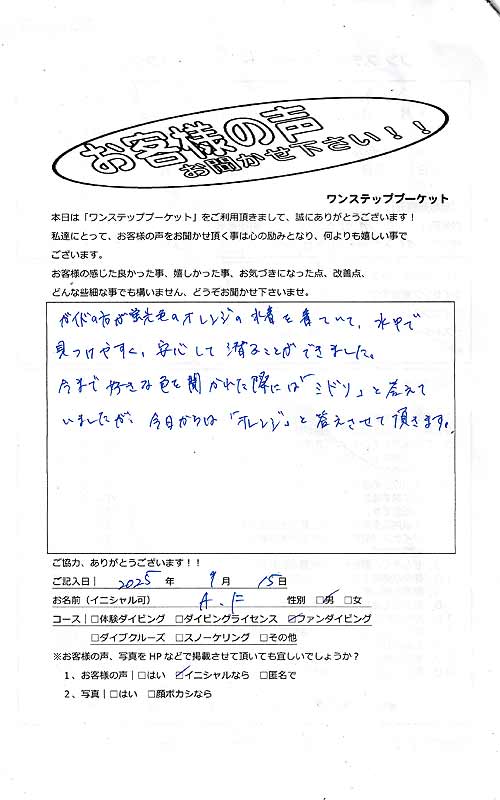 お客様の声
お聞かせ下さい！！
ワンステッププーケット
本日は「ワンステッププーケット」をご利用頂きまして、誠にありがとうございます！
私達にとって、お客様の声をお聞かせ頂く事は心の励みとなり、何よりも嬉しい事で
ございます。
お客様の感じた良かった事、嬉しかった事、お気づきになった点、改善点、
どんな些細な事でも構いません、どうぞお聞かせ下さいませ。
ガイドの方が蛍光色のオレンジの水着を着ていて、水中で
見つけやすく、安心して潜ることができました。
今まで好きな色を聞かれた際には「ミドリ」と答えて
いましたが、今日からは「オレンジ」と答えさせて頂きます。
ご協力、ありがとうございます！！
ご記入日｜ 2025 年 9 月 15 日
お名前（イニシャル可） A.F 性別 ☑男 □女
コース｜□体験ダイビング □ダイビングライセンス ☑ファンダイビング
□ダイブクルーズ □スノーケリング □その他
※お客様の声、写真をHPなどで掲載させて頂いても宜しいでしょうか？
1、お客様の声｜□はい ☑イニシャルなら □匿名で
2、写真｜□はい □顔ボカシなら